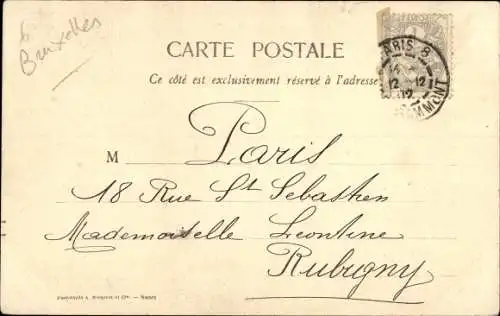 6
Bruxelles
CARTE POSTALE
Ce côté est exclusivement réservé à l'adresse
PARIS 8
12
M Paris
18 Rue St Sebastien
Mademoiselle Leontine
Rubigny